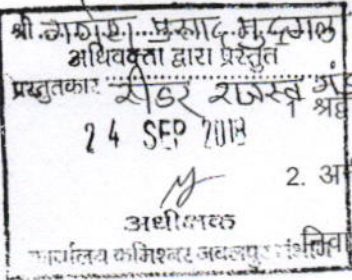 श्री गणेश प्रसाद मुदगल
अधिवक्ता द्वारा प्रस्तुत
प्रस्तुतकार रीडर राजस्व
1 श्रद्
24 SEP 2018
2. अ
अधीक्षक
कार्यालय कमिश्नर जबलपुर संभाग